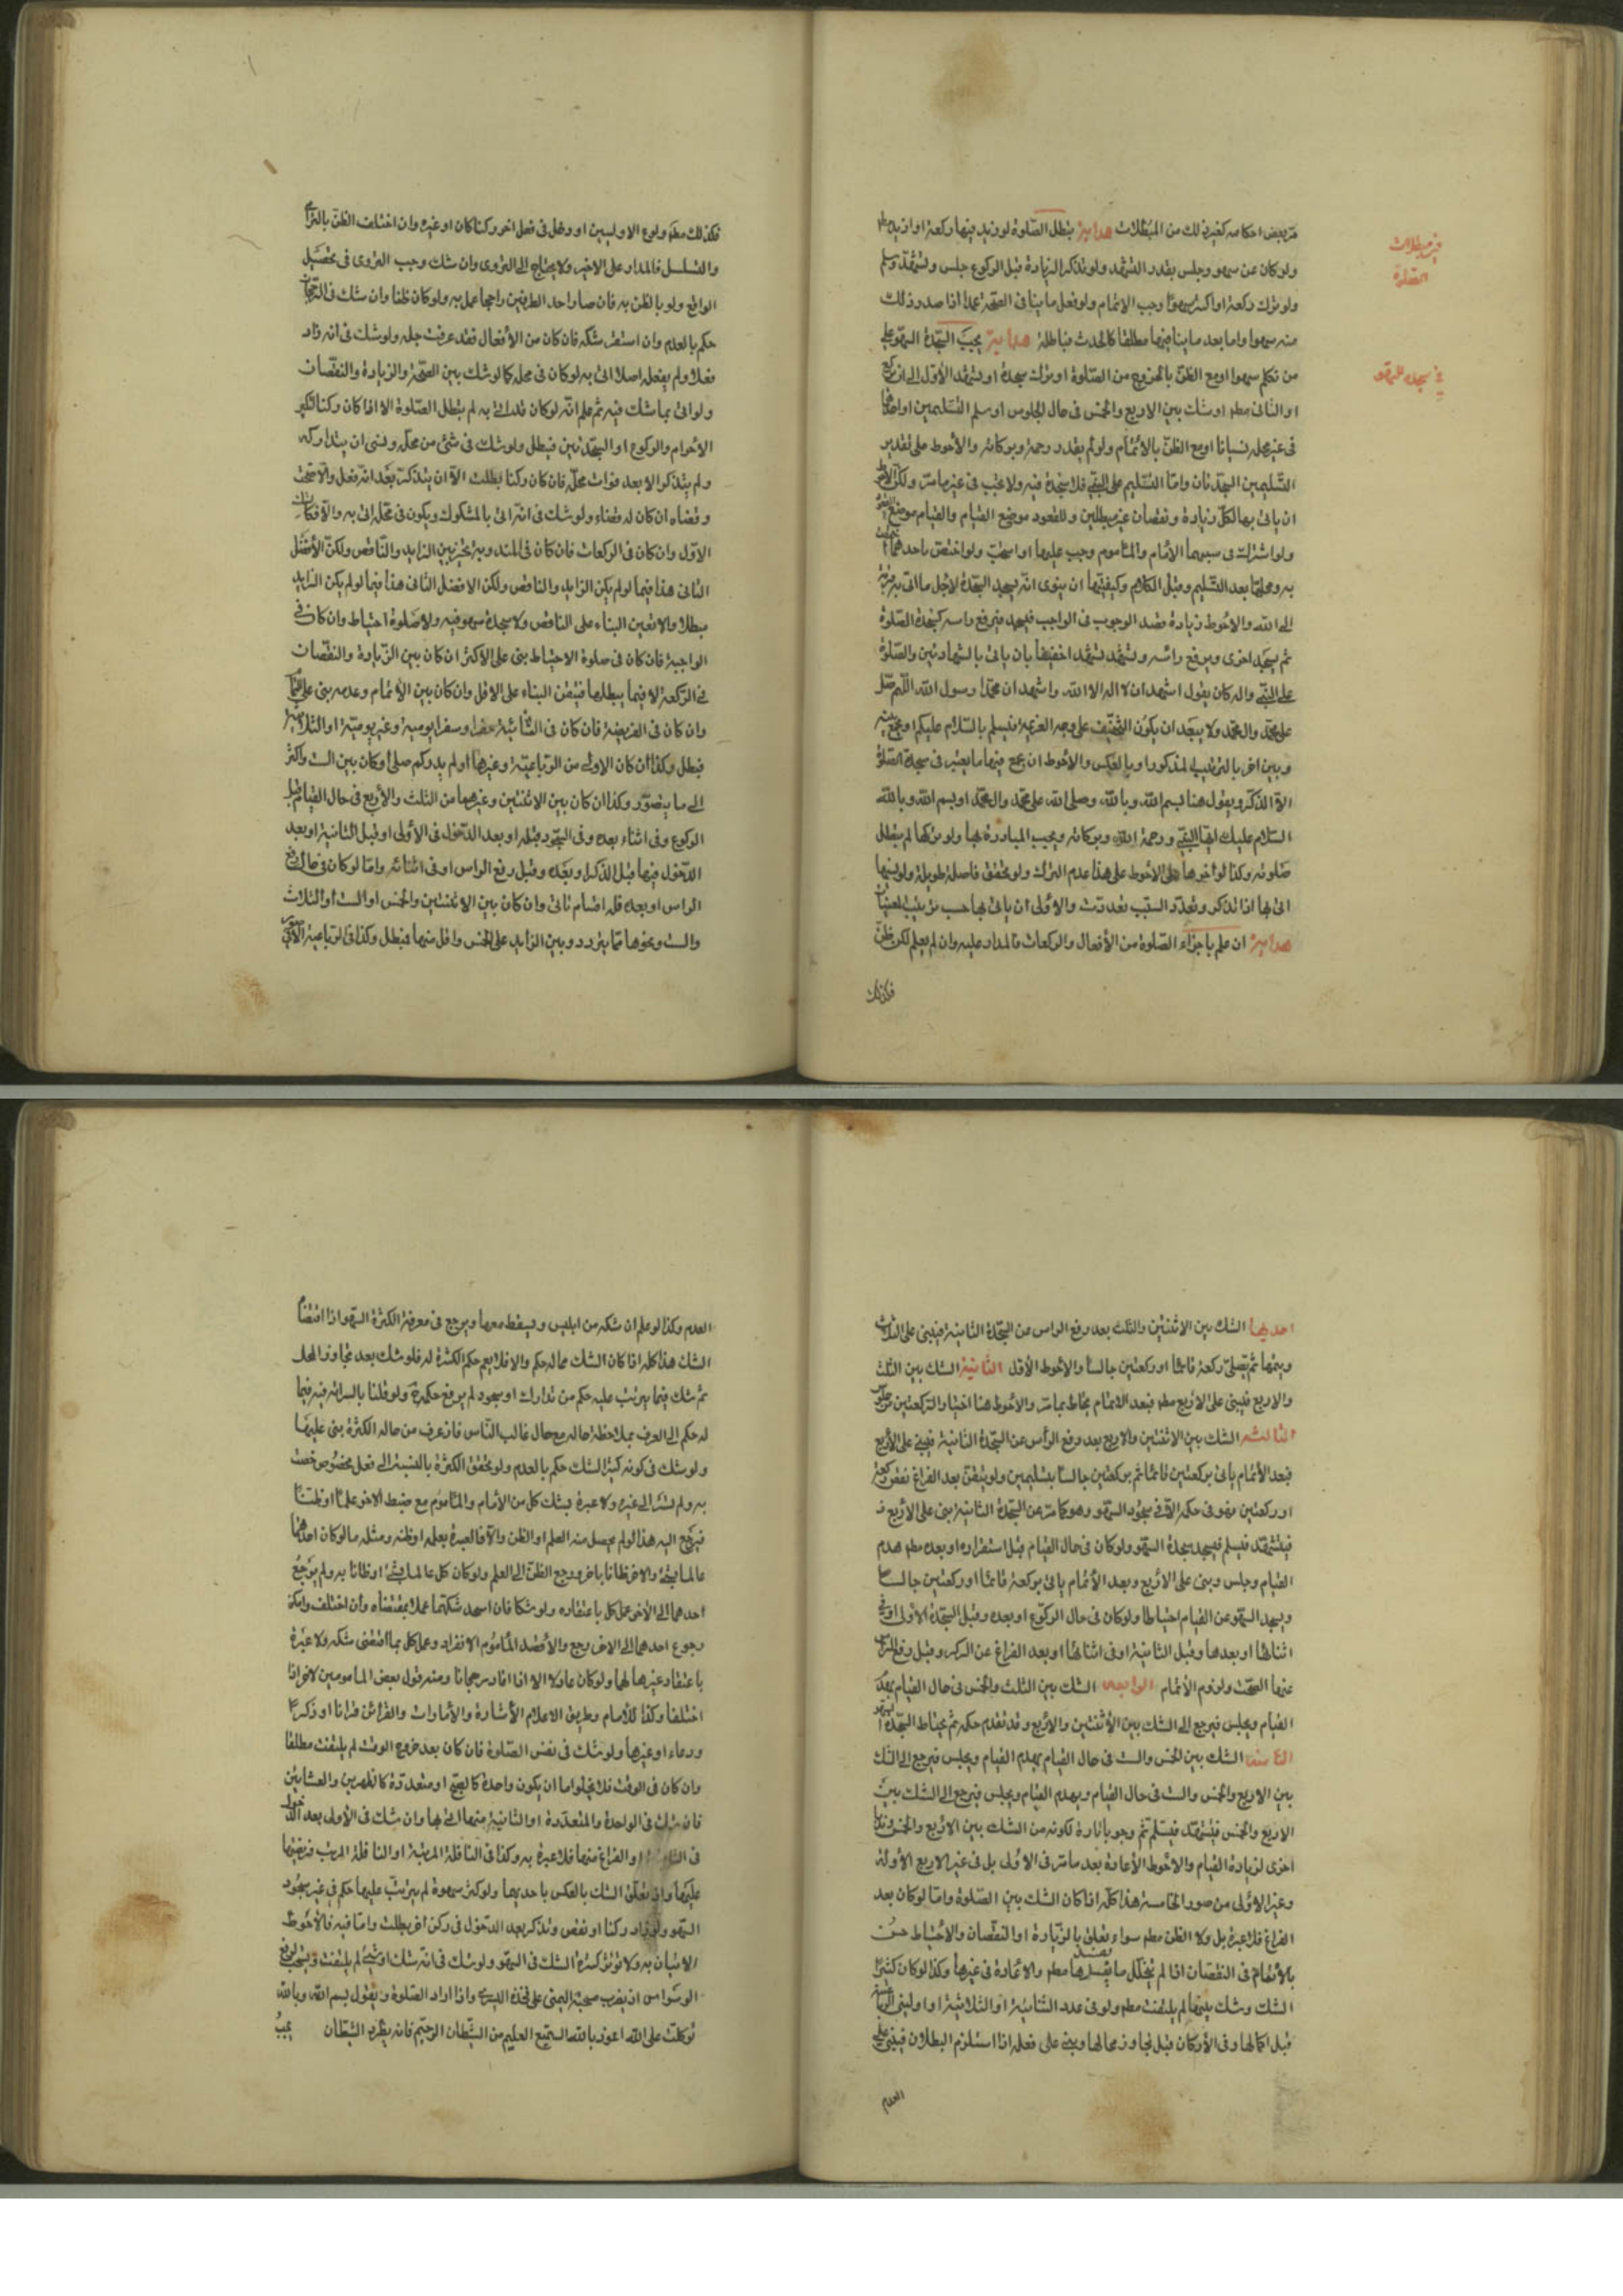 مر بعض احكامه كغير ذلك من المبطلات هداية تبطل الصلوة لو زيد فيها ركعة او ازيد مطم
ولو كان عن سهو وجلس بقدر التشهد ولو تذكر الزيادة قبل الركوع جلس وتشهد وسلم
ولو ترك ركعة او اكثر سهوا وجب الاتمام ولو فعل ما ينافى الصحة عمدا اذا صدر ذلك
منه سهوا واما بعد ما ينافيها مطلقا كالحدث فباطلة هداية يجب السجدة السهو على
من تكلم سهوا او مع الظن بالخروج من الصلوة او ترك سجدة او تشهد الاول الى ان ركع
او الثانى مطم او شك بين الاربع والخمس فى حال الجلوس او سلم التسليمين او احدهما
فى غير محله نسيانا او مع الظن بالاتمام ولو لم يقدر ورحمة وبركاته والأحوط على تقدير
التسليمين السجدتان واما التسليم على النبى فلا سجدة فيه ولا تجب فى غير ما مر ولكن الاحوط
ان ياتى بها لكل زيادة ونقصان غير مبطلين وللقعود موضع القيام والقيام موضع
ولو اشتركت فى سببهما الأمام والماموم وجب عليهما او استحب ولو اختص باحدهما
به ومحلها بعد التسليم وقبل الكلام وكيفيتها ان ينوى انه يسجد السجدة لاجل ما اتى به قربة
الى الله والاحوط زيادة قصد الوجوب فى الواجب فيسجد فيرفع راسه كسجدة الصلوة
ثم يسجد اخرى ويرفع راسه وتشهد تشهدا خفيفا بان ياتى بالشهادتين والصلوة
على النبى واله كان يقول اشهد ان لا اله الا الله واشهد ان محمدا رسول الله اللهم صل
على محمد وال محمد ولا يبعد ان يكون التخفيف على وجه العزيمة فيسلم بالسلام عليكم او يجمع بينه
وبين اخر بالترتيب المذكور او بالعكس والاحوط ان يجمع فيها ما يعتبر فى سجدة الصلوة
الا الذكر ويقول هنا بسم الله وبالله وصلى الله على محمد وال محمد او بسم الله وبالله
السلام عليك ايها النبى ورحمة الله وبركاته ويجب المبادرة بها ولو تركها لم يبطل
صلوته وكذا لو أخرها على الاحوط على هذا عدم الترك ولو تحقق فاصلة طويلة ولو نسيها
اتى بها اذا تذكر وتعدد السبب تعددت والاولى ان ياتى بها حسب ترتيب
هداية ان علم باجزاء الصلوة من الأفعال والركعات فالمدار عليه وان لم يعلم لكن ظن
فكذلك
فى مبطلات
الصلوة
فى سجدة السهو
فكذلك مطم ولو مع الاوليين او دخل فى فعل اخر ركنا كان او غيره وان اختلف الظن
والتسلسل فالمدار على الاخير ولا يحتاج الى التروى وان شك وجب التروى فى تحصيل
الواقع ولو بالظن به فان صار احد الطرفين راجحا عمل به ولو كان ظنا وان شك فى
حكم بالعدم وان استقر شكه فان كان من الأفعال فقد عرفت حله ولو شك فى انه زاد
فعلا ولم يفعله اصلا اتى به لو كان فى محله كما لو شك بين الصحة والزيادة والنقصان
ولو اتى بما شك فيه ثم علم انه لو كان قد اتى به لم تبطل الصلوة الا اذا كان ركنا كتكبير
الاحرام والركوع او السجدتين فيبطل ولو شك فى شئ من محله ونسى ان يتداركه
ولم يتذكر الا بعد فوات محله فان كان ركنا بطلت الا ان يتذكر بعد انه فعل والا صحت
وقضاه ان كان له قضاء ولو شك فى انه اتى بالمشكوك ويكون فى محله اتى به والا فكان
الاول وان كان فى الركعات فان كان فى المندوبة تخير بين الزايد والناقص ولكن الأفضل
الثانى هذا فيما لو لم يكن الزايد والناقص ولكن الافضل الثانى هذا فيما لو لم يكن الزايد
مبطلا والا تعين البناء على الناقص ولا سجدة سهو فيه ولا صلوة احتياط وان كان فى
الواجبة فان كان فى صلوة الاحتياط بنى على الاكثر ان كان بين الزيادة والنقصان
فى الركعة لا فيما يبطلها فيتعين البناء على الاقل وان كان بين الأتمام وعدمه بنى على
وان كان فى الفريضة فان كان فى الثنائية حضرا وسفرا يومية وغير يومية او الثلاثية
فبطل وكذا ان كان الاولى من الرباعية وغيرها او لم يدركم صلى او كان بين الست واكثر
الى ما يتصور وكذا ان كان بين الاثنتين وغيرهما من الثلث والأربع فى حال القيام قبل
الركوع وفى اثناء بعده وفى السجود قبله او بعد الدخول فى الأولى او قبل الثانية او بعد
الدخول فيها قبل الذكر او بعده وقبل رفع الراس او فى اثنائه واما لو كان فى حال رفع
الراس او بعده فله اقسام تاتى وان كان بين الاثنتين والخمس او الست أو الثلاث
والست ونحوها مما يتردد وبين الزايد على الخمس واقل منها فبطل وكذا فى الرباعية
احديها الشك بين الاثنتين والثلث بعد رفع الراس من السجدة الثانية فيبنى على الثلث
ويتمها ثم يصلى ركعة قائما او ركعتين جالسا والاحوط الأول الثانية الشك بين الثلث
والاربع فيبنى على الاربع مطم فبعد الاتمام يحتاط بما مر والأحوط هنا اختيار الركعتين من جلوس
الثالثة الشك بين الاثنتين والاربع بعد رفع الرأس عن السجدة الثانية فيبنى على الأربع
فبعد الأتمام ياتى بركعتين قائما ثم بركعتين جالسا بتسليمين ولو تيقن بعد الفراغ نقص ركعة
او ركعتين فهو فى حكم الاتى فى سجود السهو وهو كما مر عن السجدة الثانية بنى على الأربع
فيتشهد فيسلم فيسجد سجدة السهو ولو كان فى حال القيام قبل استقراره او بعده مطم هدم
القيام وجلس وبنى على الأربع وبعد الأتمام ياتى بركعة قائما او ركعتين جالسا
ويسجد السهو عن القيام احتياطا ولو كان فى حال الركوع او بعده وقبل السجدة الاولى او فى
اثنائها او بعدها وقبل الثانية او فى اثنائها او بعد الفراغ عن الذكر وقبل رفع الراس
عنها الصحت ولزوم الأتمام الرابعة الشك بين الثلث والخمس فى حال القيام يهدم
القيام ويجلس فيرجع الى الشك بين الأثنتين والأربع وقد تقدم حكمه ثم يحتاط السجدة
الخامسة الشك بين الخمس والست فى حال القيام يهدم القيام ويجلس فيرجع الى الشك
بين الاربع والخمس والست فى حال القيام ويهدم القيام ويجلس فيرجع الى الشك بين
الاربع والخمس فيتشهد فيسلم ثم وجوبا تارة لكونه من الشك بين الأربع والخمس وندبا
اخرى لزيادة القيام والاحوط الأعادة بعد ما مر فى الاولى بل فى غير الاربع الأولة
وغير الاولى من صور الخامسة هذا كله اذا كان الشك بين الصلوة واما لو كان بعد
الفراغ فلا عبرة بل ولا الظن مطم سواء تعلق بالزيادة او النقصان والأحتياط حسن
بالأتمام فى النقصان اذا لم يتخلل ما يفسدها مطم والاعادة فى غيرها وكذا لو كان كثير
الشك وشك بينها لم يلتفت مطم ولو فى عدد الثنائية او الثلاثية او اوليتى الرباعية
قبل اكمالها وفى الأركان قبل تجاوز محالها وبنى على فعله اذا استلزم البطلان فيبنى على
العدم
العدم وكذا لو علم ان شكه من ابليس ويسقط معها ويرجع فى معرفة الكثرة السهو اذا اقتضا
الشك هذا كله اذا كان الشك مما له حكم والا فلا يعم حكم الكثرة له فلو شك بعد تجاوز المحل
ثم شك فيما يترتب عليه حكم من تدارك او سجود لم يرفع حكمه ولو قلنا بالسراية فيه فيما
له حكم الى العرف بملاحظة حاله مع حال غالب الناس فان عرف من حاله الكثرة بنى عليها
ولو شك فى كونه كثير الشك حكم بالعدم ولو تحقق الكثرة بالنسبة الى فعل مخصوص خصت
به ولم تسر الى غيره ولا عبرة بشك كل من الأمام والماموم مع ضبط الاخر علما او ظنا
فيرجع اليه هذا لو لم يحصل منه العلم او الظن والا فالعبرة بعلمه او ظنه ومثله ما لو كان احدهما
عالما بشئ والاخر ظانا باخر ورجع الظن الى العلم ولو كان كل عالما بشئ او ظانا به ولم يرجع
احدهما الى الأخر عمل كل باعتقاده ولو شكا فان اتحد شكهما عملا بمقتضاه وان اختلف وامكن
رجوع احدهما الى الاخر رجع والا قصد المأموم الانفراد وعمل كل بما اقتضى شكه ولا عبرة
باعتقاد غيرهما لهما ولو كان عادلا الا اذا افاد رجحانا ومنه قول بعض المامومين لاخر اذا
اختلفا وكذا للأمام وطريق الاعلام الأشارة والأمارات والقرائن قرانا او ذكرا
ودعاء او غيرها ولو شك فى نفس الصلوة فان كان بعد خروج الوقت لم يلتفت مطلقا
وان كان فى الوقت فلا يخلو اما ان يكون واحدة كالصبح او متعددة كالظهرين والعشائين
فان شك فى الواحدة والمتعددة او الثانية منهما اتى بها وان شك فى الأولى بعد الدخول
فى الثانية او الفراغ منها فلا عبرة به وكذا فى النافلة المرتبة او النافلة المرتب فرضيتها
عليها وان تعلق الشك بالعكس باحديهما ولو كثر سهوه لم يترتب عليها حكم فى غير سجود
السهو ولو زاد ركنا او نقص وتذكر بعد الدخول فى ركن اخر بطلت واما فيه فالأحوط
الاتيان به ولا تؤثر كثرة الشك فى السهو ولو شك فى انه شك او شئ لم يلتفت ويستحب لدفع
الوسواس ان يضرب سبحته اليمنى على فخذه اليسرى واذا اراد الصلوة ويقول بسم الله وبالله
توكلت على الله اعوذ بالله السميع العليم من الشيطان الرجيم فانه يطرد الشيطان يجب